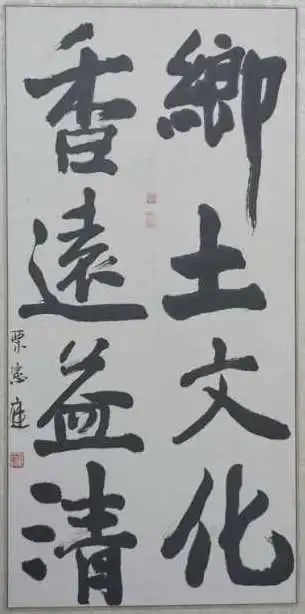 鄉土文化
香遠益清
栗憲庭